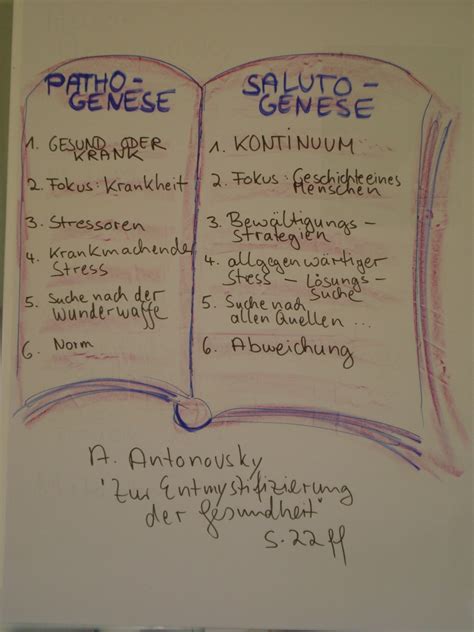 PATHO-
GENESE
1. GESUND ODER
KRANK
2. Fokus: Krankheit
3. Stressoren
4. Krankmachender
Stress
5. Suche nach der
Wunderwaffe
6. Norm
SALUTO-
GENESE
1. KONTINUUM
2. Fokus: Geschichte eines
Menschen
3. Bewältigungs-
Strategien
4. allgegenwärtiger
Stress - Lösungs-
Suche
5. Suche nach
allen Quellen ...
6. Abweichung
A. Antonovsky
"Zur Entmystifizierung
der Gesundheit"
S. 22 ff